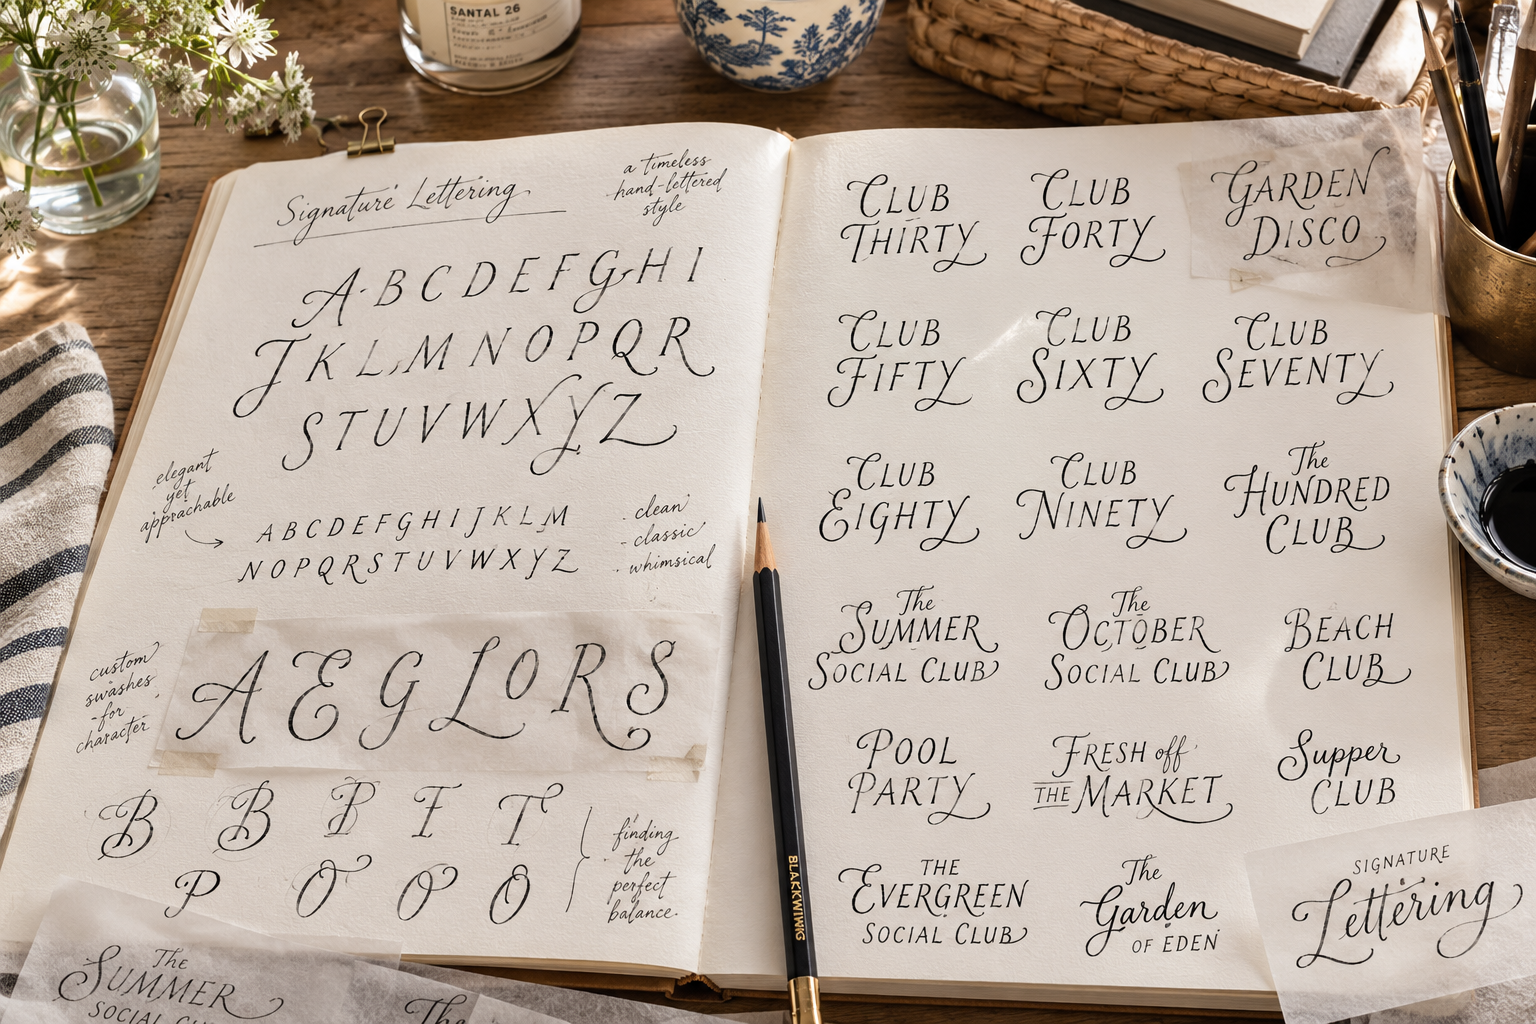 SANTAL 26
Signature Lettering
a timeless
hand-lettered
style
A B C D E F G H I
J K L M N O P Q R
S T U V W X Y Z
elegant
yet
approachable
A B C D E F G H I J K L M
N O P Q R S T U V W X Y Z
- clean
- classic
- whimsical
custom
swashes
for
character
A E G L O R S
B B B F T
P O O O
finding
the
perfect
balance.
The
SUMMER
SOCIAL
The
CLUB
THIRTY
CLUB
FORTY
GARDEN
DISCO
CLUB
FIFTY
CLUB
SIXTY
CLUB
SEVENTY
CLUB
EIGHTY
CLUB
NINETY
The
HUNDRED
CLUB
The
SUMMER
SOCIAL CLUB
The
OCTOBER
SOCIAL CLUB
BEACH
CLUB
POOL
PARTY
FRESH off
THE MARKET
Supper
CLUB
THE
EVERGREEN
SOCIAL CLUB
The
Garden
OF EDEN
SIGNATURE
Lettering